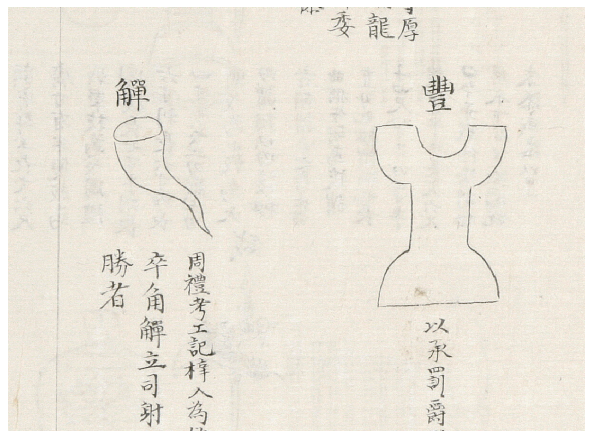 厚
龍
委
豐
以承罰爵
觶
周禮考工記梓人為
卒角觶立司射
勝者